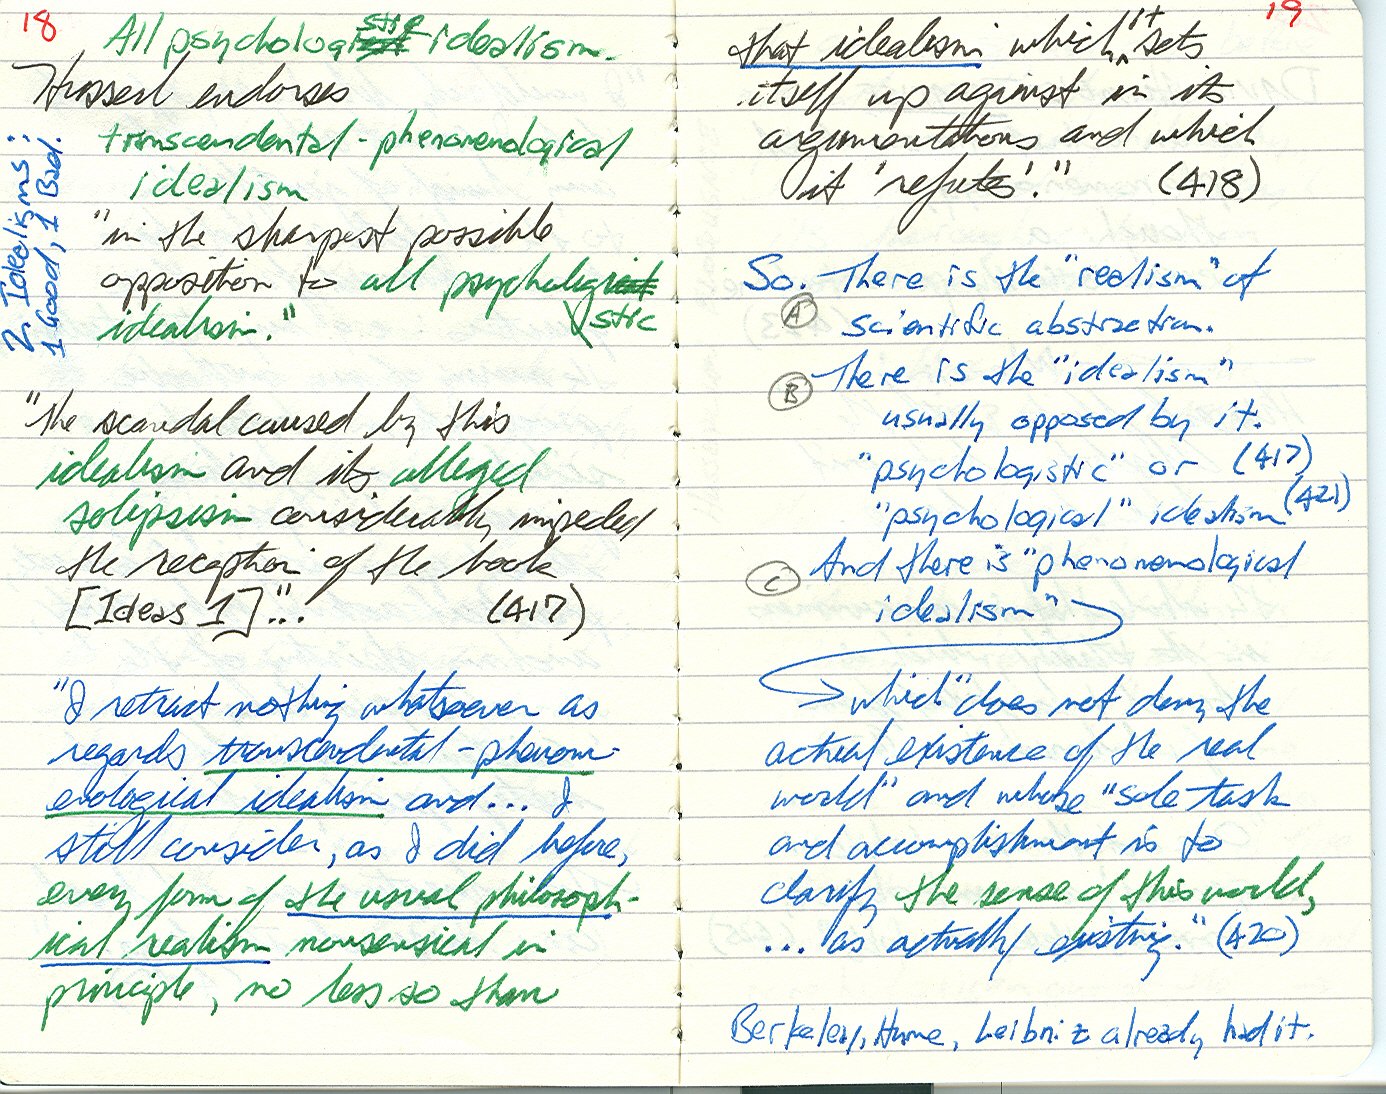 18
All psychologistic idealism.
Husserl endorses
transcendental-phenomenological
idealism
"in the sharpest possible
opposition to all psychologistic
idealism."
2. Idealisms:
1 Good, 1 Bad.
"the scandal caused by this
idealism and its alleged
solipsism considerably impeded
the reception of the book
[Ideas 1]"... (417)
"I retract nothing whatsoever as
regards transcendental-phenom-
enological idealism and... I
still consider, as I did before,
every form of the usual philosoph-
ical realism nonsensical in
principle, no less so than
19
that idealism which it sets
itself up against in its
argumentations and which
it 'refutes'." (418)
So. There is the "realism" of
A scientific abstraction.
B There is the "idealism"
usually opposed by it.
"psychologistic" or (417)
"psychological" idealism (421)
C And there is "phenonemological
idealism"
which "does not deny the
actual existence of the real
world" and whose "sole task
and accomplishment is to
clarify the sense of this world,
... as actually existing." (420)
Berkeley, Hume, Leibniz already had it.